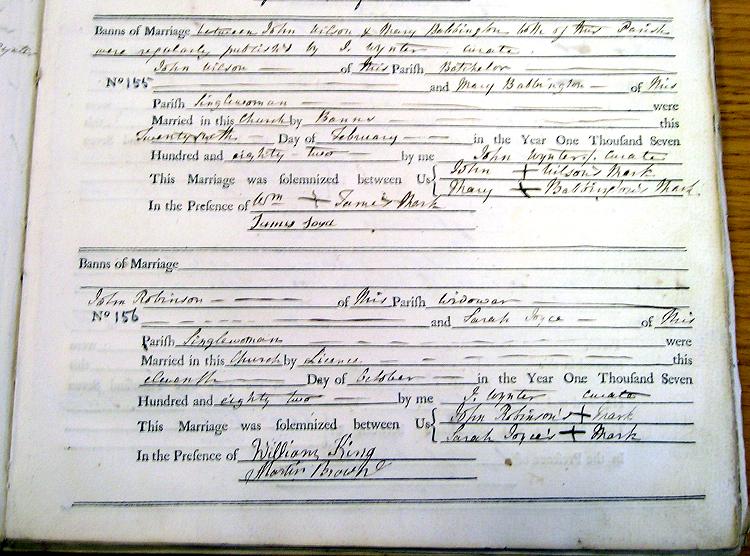 Banns of Marriage between John Wilson & Mary Babbington both of this Parish
were regularly publish'd by J. Wynter curate
John Wilson of this Parish Batchelor
No 155 and Mary Babbington of this
Parish Singlewoman were
Married in this Church by Banns this
Twenty sixth Day of February in the Year One Thousand Seven
Hundred and eighty two by me John Wynter curate
This Marriage was solemnized between Us { John + Wilson's Mark
Mary + Babbington's Mark
In the Presence of Wm + James's Mark
James
Banns of Marriage
John Robinson of this Parish Widower
No 156 and Sarah Joyce of this
Parish Singlewoman were
Married in this Church by Licence this
eleventh Day of October in the Year One Thousand Seven
Hundred and eighty two by me J. Wynter curate
This Marriage was solemnized between Us { John Robinson's + Mark
Sarah Joyce's + Mark
In the Presence of William King
Martin Brown